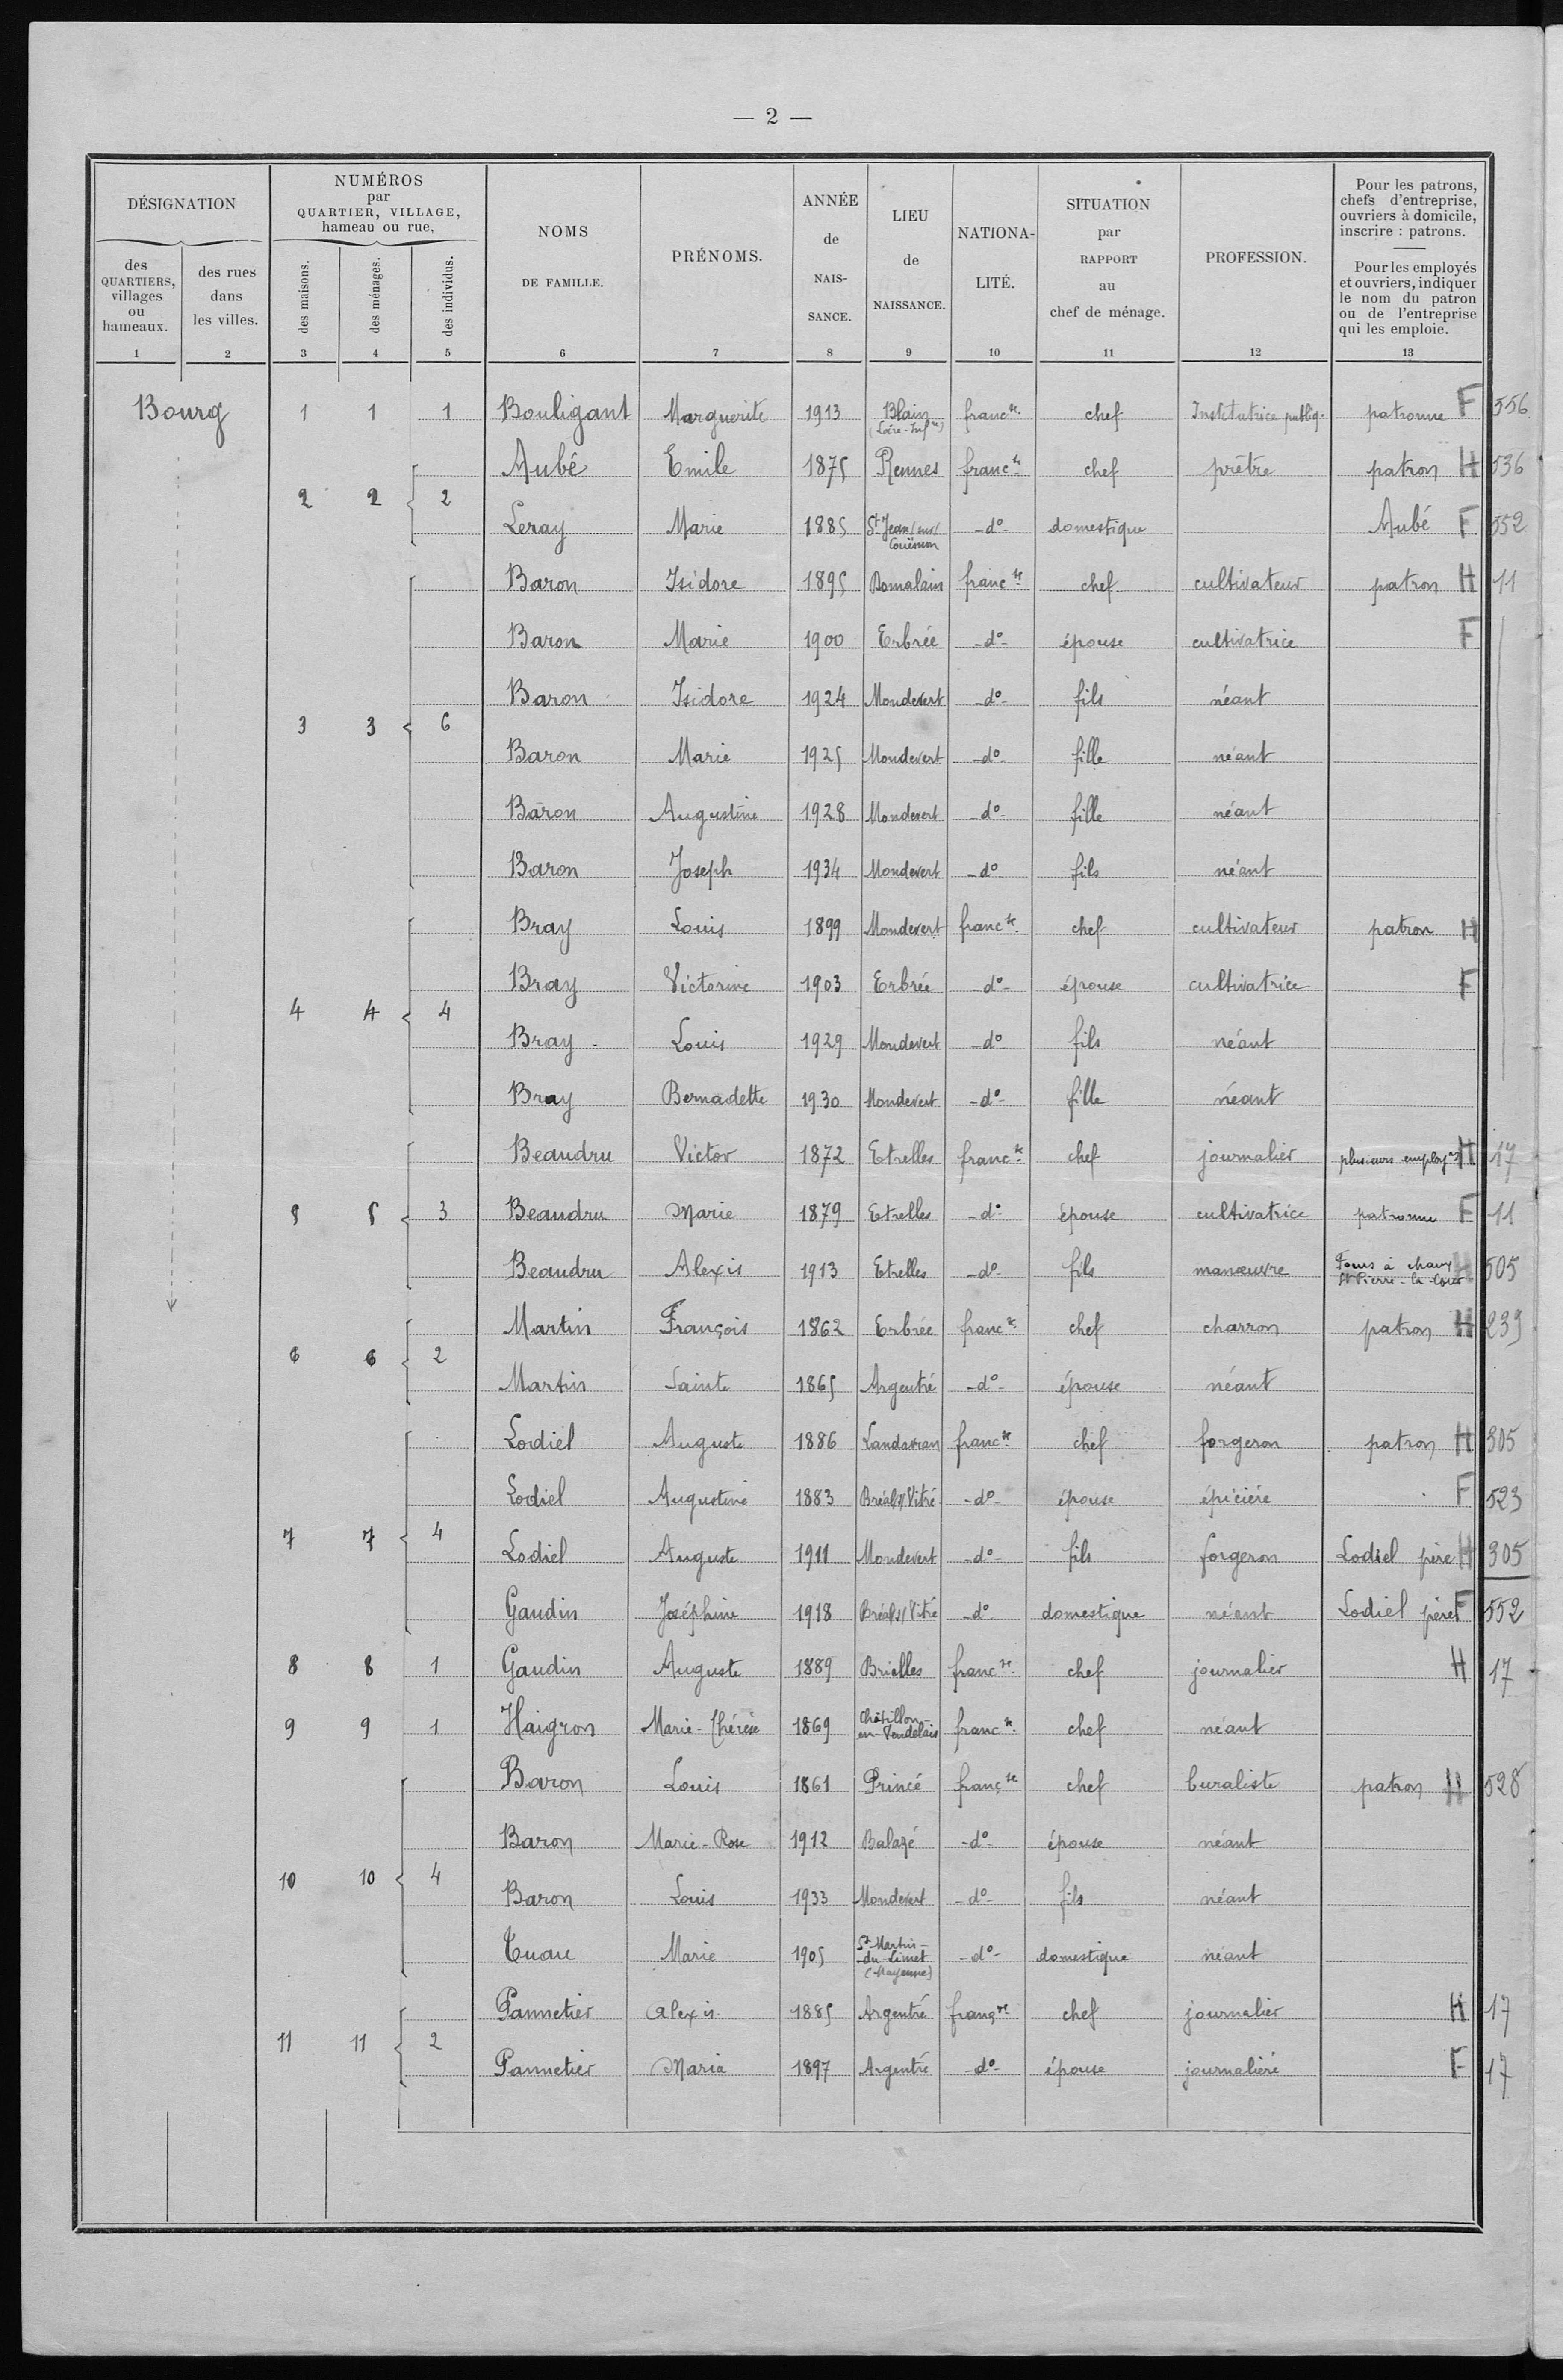 — 2 —
DÉSIGNATION
des QUARTIERS, villages ou hameaux.
des rues dans les villes.
NUMÉROS par QUARTIER, VILLAGE, hameau ou rue,
des maisons.
des ménages.
des individus.
NOMS DE FAMILLE.
PRÉNOMS.
ANNÉE de NAIS- SANCE.
LIEU de NAISSANCE.
NATIONA- LITÉ.
SITUATION par RAPPORT au chef de ménage.
PROFESSION.
Pour les patrons, chefs d'entreprise, ouvriers à domicile, inscrire : patrons.
Pour les employés et ouvriers, indiquer le nom du patron ou de l'entreprise qui les emploie.
1 2 3 4 5 6 7 8 9 10 11 12 13
Bourg 1 1 1 Bouligant Marguerite 1913 Blain (Loire-Infre) francse chef Institutrice publiq. patronne F 556
Aubé Emile 1875 Rennes francse chef prêtre patron H 536
2 2 2
Leray Marie 1885 St Jean sur Couësnon -do- domestique Aubé F 552
Baron Isidore 1895 Domalain francse chef cultivateur patron H 11
Baron Marie 1900 Erbrée -do- épouse cultivatrice F
Baron Isidore 1924 Mondevert -do- fils néant
3 3 6
Baron Marie 1925 Mondevert -do- fille néant
Baron Augustine 1928 Mondevert -do- fille néant
Baron Joseph 1934 Mondevert -do fils néant
Bray Louis 1899 Mondevert francse chef cultivateur patron H
Bray Victorine 1903 Erbrée do- épouse cultivatrice F
4 4 4
Bray Louis 1929 Mondevert -do- fils néant
Bray Bernadette 1930 Mondevert -do- fille néant
Beaudru Victor 1872 Etrelles francse chef journalier plusieurs employrs H 17
5 5 3 Beaudru Marie 1879 Etrelles -do- épouse cultivatrice patronne F 11
Beaudru Alexis 1913 Etrelles -do- fils manœuvre Fours à chaux St Pierre-la-Cour H 505
Martin François 1862 Erbrée francse chef charron patron H 239
6 6 2
Martin Sainte 1865 Argentré -do- épouse néant
Lodiel Auguste 1886 Landavran francse chef forgeron patron H 305
Lodiel Augustine 1883 Bréal s/ Vitré -do- épouse épicière F 523
7 7 4
Lodiel Auguste 1911 Mondevert -do- fils forgeron Lodiel père H 305
Gaudin Joséphine 1918 Bréal s/ Vitré -do domestique néant Lodiel père F 552
8 8 1 Gaudin Auguste 1889 Brielles francse chef journalier H 17
9 9 1 Haigron Marie-Thérèse 1869 Châtillon-en-Vendelais francse chef néant
Baron Louis 1861 Princé françse chef buraliste patron H 528
Baron Marie-Rose 1912 Balazé -do- épouse néant
10 10 4
Baron Louis 1933 Mondevert -do- fils néant
Tuau Marie 1905 St-Martin-du-Limet (Mayenne) -do- domestique néant
Pannetier Alexis 1885 Argentré françse chef journalier H 17
11 11 2
Pannetier Maria 1897 Argentré -do- épouse journalière F 17